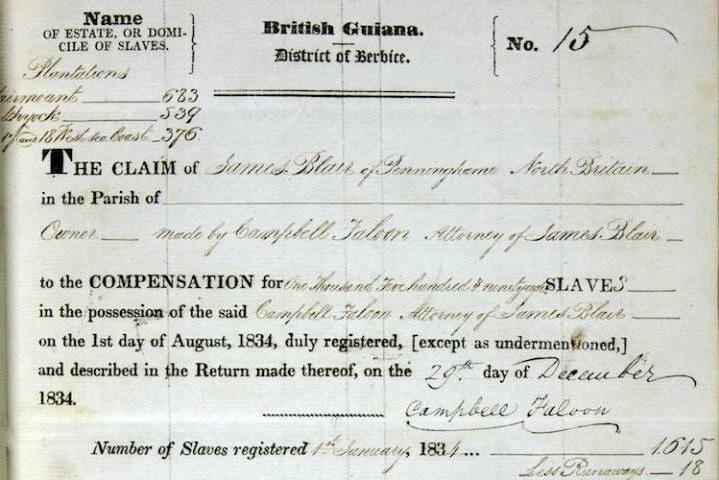 Name
OF ESTATE, OR DOMI-
CILE OF SLAVES.
British Guiana.
District of Berbice.
No. 15
Plantations
irmount 683
thyock 539
and 18 West sea Coast 376
THE CLAIM of James Blair of Penninghame North Britain
in the Parish of
Owner made by Campbell Faloon Attorney of James Blair
to the COMPENSATION for One Thousand Five hundred & SLAVES
in the possession of the said Campbell Faloon Attorney of James Blair
on the 1st day of August, 1834, duly registered, [except as undermentioned,]
and described in the Return made thereof, on the 29th day of December
1834.
Campbell Faloon
Number of Slaves registered 1st January, 1834 ... 1615
Less Runaways 18